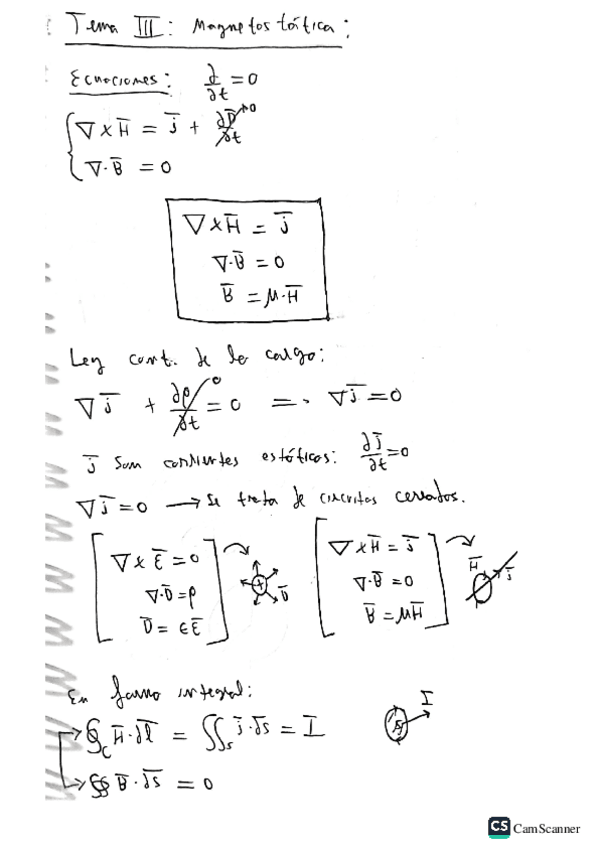 Tema III: Magnetostática:
Ecuaciones: ∂/∂t = 0
∇ x H̄ = J̄ + ∂D̄/∂t →0
∇·B̄ = 0
∇ x H̄ = J̄
∇·B̄ = 0
B̄ = μ·H̄
Ley cont. de la carga:
∇J̄ + ∂ρ/∂t →0 = 0 =>. ∇J̄ = 0
J̄ son corrientes estáticas: ∂J̄/∂t = 0
∇J̄ = 0 → Se trata de circuitos cerrados.
∇ x Ē = 0
∇·D̄ = ρ
D̄ = εĒ
+ D̄
∇ x H̄ = J̄
∇·B̄ = 0
B̄ = μH̄
H̄ J̄
En forma integral:
∮c H̄·dl̄ = ∬s J̄·ds̄ = I
∯ B̄·ds̄ = 0
I
CS CamScanner